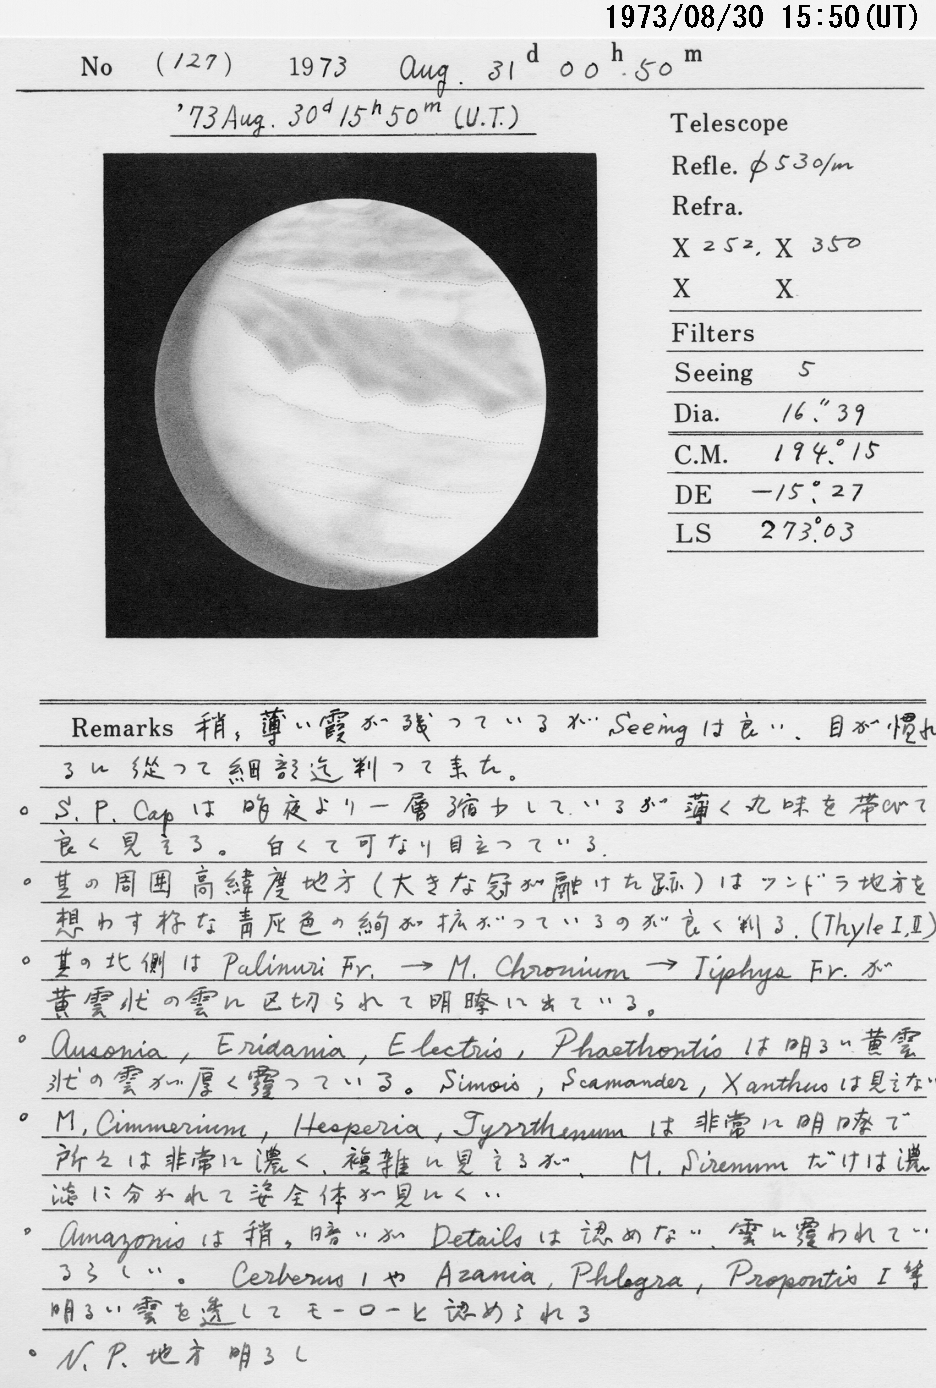 1973/08/30 15:50(UT)
No (127) 1973 Aug. 31d 00h.50m
'73 Aug. 30d 15h 50m (U.T.)
Telescope
Refle. φ530/m
Refra.
X 252, X 350
X X
Filters
Seeing 5
Dia. 16."39
C.M. 194.°15
DE −15.°27
LS 273.°03
Remarks 稍々薄い霞が残っているが Seeingは良い、目が慣れ
るに従って細部迄判って来た。
○ S. P. Capは昨夜より一層縮少しているが薄く丸味を帯びて
良く見える。白くて可なり目立っている.
○ 其の周囲高緯度地方(大きな冠が融けた跡)はツンドラ地方を
想わす様な青灰色の絢が拡がっているのが良く判る. (Thyle I,II)
○ 其の北側は Palinuri Fr. → M. Chronium → Tiphys Fr. が
黄雲状の雲に区切られて明瞭に出ている。
○ Ausonia, Eridania, Electris, Phaethontisは明るい黄雲
状の雲が厚く覆っている。Simois, Scamander, Xanthusは見えない
○ M. Cimmerium, Hesperia, Tyrrthenumは非常に明瞭で
所々は非常に濃く、複雑に見えるが、 M. Sirenumだけは濃
淡に分かれて姿全体が見にくい
○ Amazonisは稍々暗いが Detailsは認めない、雲に覆われてい
るらしい。 Cerberus Iや Azania, Phlegra, Propontis I 等
明るい雲を透してモーローと認められる
○ N. P. 地方明るし